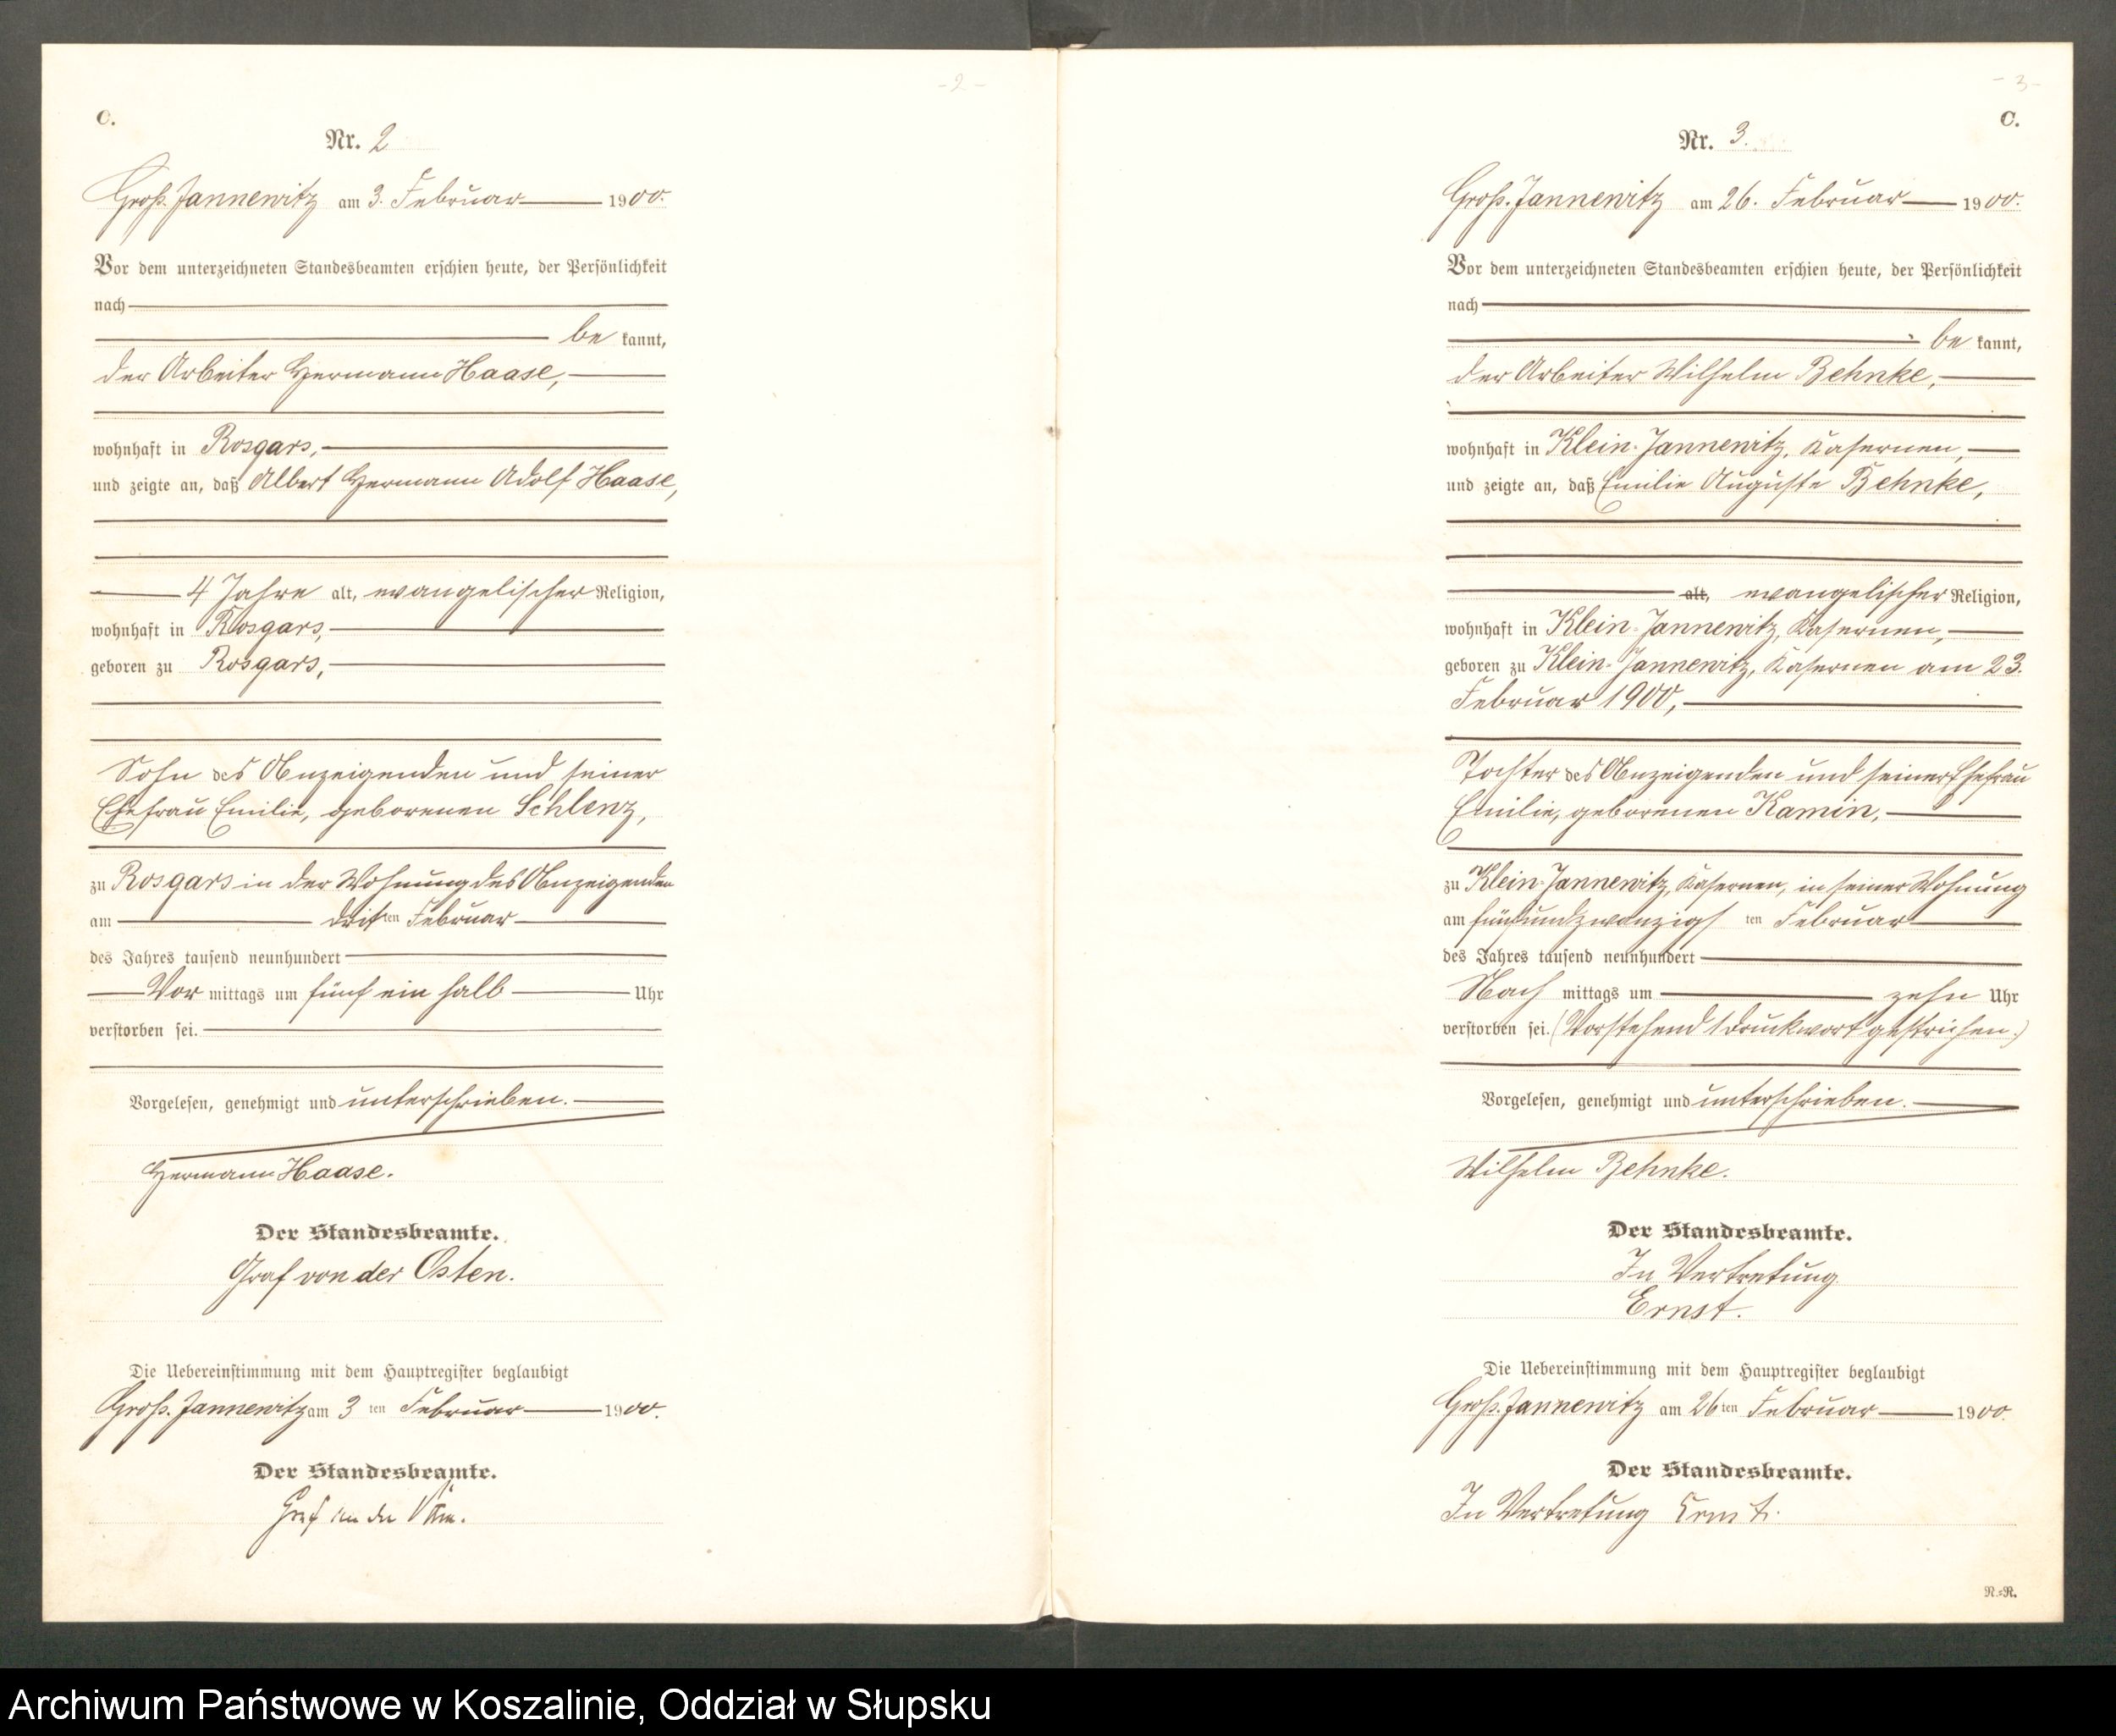 - 2 -
C.
Nr. 2
Groß-Jannewitz am 3. Februar 1900.
Vor dem unterzeichneten Standesbeamten erschien heute, der Persönlichkeit
nach
be kannt,
der Arbeiter Hermann Haase,
wohnhaft in Rosgars,
und zeigte an, daß Albert Hermann Adolf Haase,
4 Jahre alt, evangelischer Religion,
wohnhaft in Rosgars,
geboren zu Rosgars,
Sohn des Anzeigenden und seiner
Ehefrau Emilie, geborenen Schlenz,
zu Rosgars in der Wohnung des Anzeigenden
am dritten Februar
des Jahres tausend neunhundert
Vor mittags um fünf ein halb Uhr
verstorben sei.
Vorgelesen, genehmigt und unterschrieben.
Hermann Haase.
Der Standesbeamte.
Graf von der Osten.
Die Uebereinstimmung mit dem Hauptregister beglaubigt
Groß-Jannewitz am 3 ten Februar 1900.
Der Standesbeamte.
Graf von der Osten.
- 3 -
C.
Nr. 3.
Groß-Jannewitz am 26. Februar 1900.
Vor dem unterzeichneten Standesbeamten erschien heute, der Persönlichkeit
nach
be kannt,
der Arbeiter Wilhelm Behnke,
wohnhaft in Klein-Jannewitz, Kasernen,
und zeigte an, daß Emilie Auguste Behnke,
alt, evangelischer Religion,
wohnhaft in Klein-Jannewitz, Kasernen,
geboren zu Klein-Jannewitz, Kasernen am 23.
Februar 1900,
Tochter des Anzeigenden und seiner Ehefrau
Emilie, geborenen Kamin,
zu Klein-Jannewitz, Kasernen, in seiner Wohnung
am fünfundzwanzigs ten Februar
des Jahres tausend neunhundert
Nach mittags um zehn Uhr
verstorben sei. (Vorstehend 1 Druckwort gestrichen.)
Vorgelesen, genehmigt und unterschrieben.
Wilhelm Behnke.
Der Standesbeamte.
In Vertretung
Ernst.
Die Uebereinstimmung mit dem Hauptregister beglaubigt
Groß-Jannewitz am 26 ten Februar 1900.
Der Standesbeamte.
In Vertretung Ernst.
R.=R.
Archiwum Państwowe w Koszalinie, Oddział w Słupsku